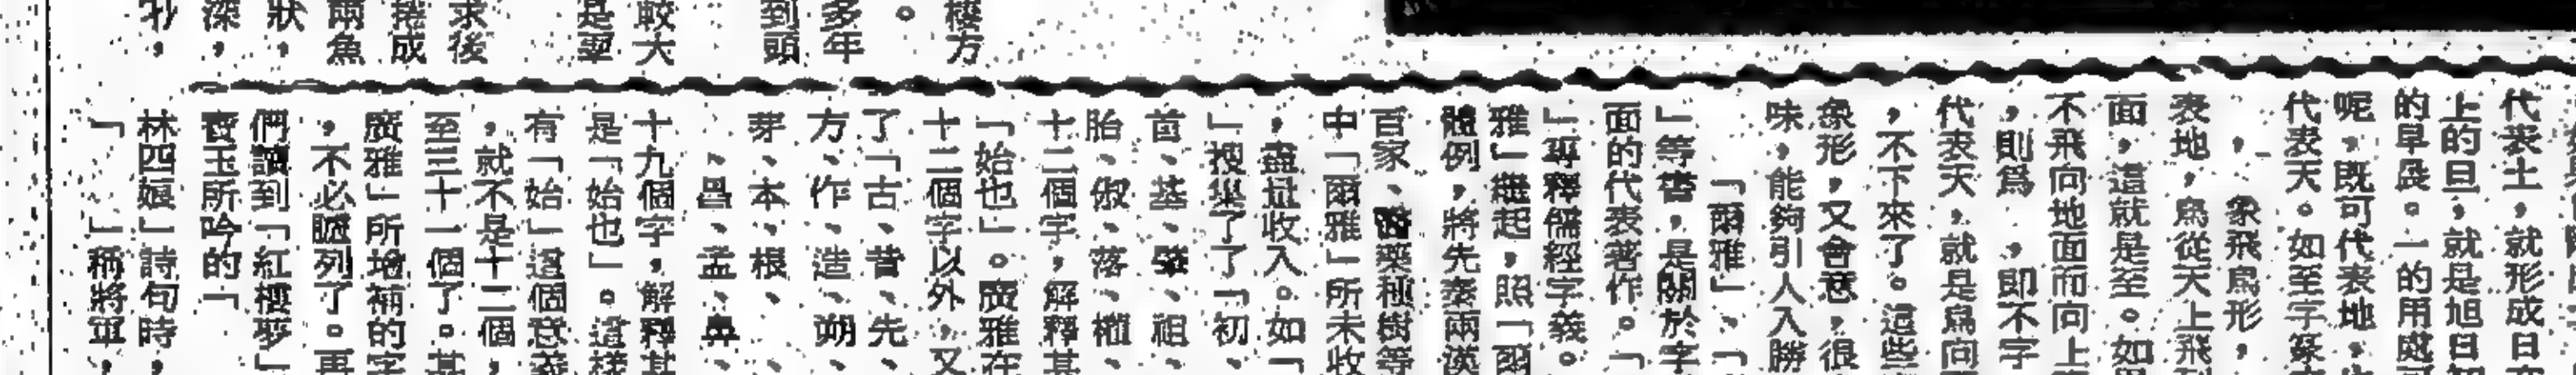 樓方
。
多年
到頭
較大
是單
求後
捲成
兩魚
狀，
深，
秒，
代表土，就形成日在
上的旦，就是旭日初
的早晨。一的用處可
呢，既可代表地，也
代表天。如至字篆文
，象飛鳥形，
表地，鳥從天上飛到
面，這就是至。如果
不飛向地面而向上
，則爲　，即不字
代表天，就是鳥向
，不下來了。這些
象形，又會意，很
味，能夠引人入勝
「爾雅」、「
」等書，是關於字
面的代表著作。「
」專釋儒經字義。
雅」繼起，照「爾
體例，將先秦兩漢
百家、醫藥種樹等
中「爾雅」所未收
，盡量收入。如「
」搜集了「初、
首、基、肇、祖、
胎、俶、落、權、
十二個字，解釋其
「始也」。廣雅在
十二個字以外，又
了「古、昔、先、
方、作、造、朔、
芽、本、根、
、昌、孟、鼻、
十九個字，解釋其
是「始也」。這樣
有「始」這個意義
，就不是十二個，
至三十一個了。其
廣雅」所增補的字
，不必臚列了。再
們讀到「紅樓夢」
寶玉所吟的「
林四娘」詩句時，
「　　」稱將軍，